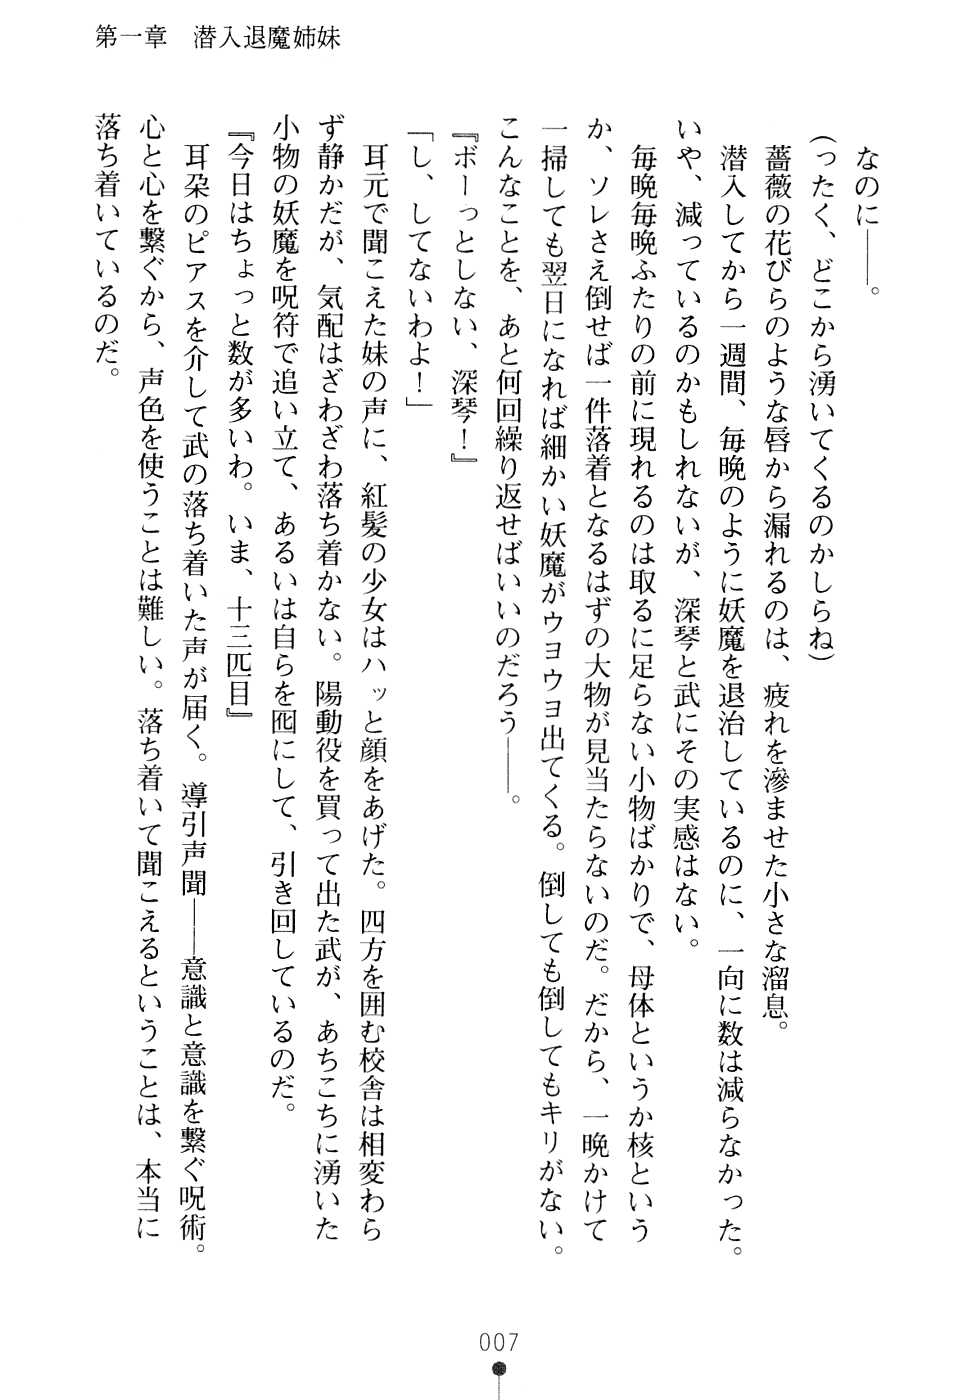 第一章　潜入退魔姉妹
なのに――。
（ったく、どこから湧いてくるのかしらね）
薔薇の花びらのような唇から漏れるのは、疲れを滲ませた小さな溜息。
潜入してから一週間、毎晩のように妖魔を退治しているのに、一向に数は減らなかった。
いや、減っているのかもしれないが、深琴と武にその実感はない。
毎晩毎晩ふたりの前に現れるのは取るに足らない小物ばかりで、母体というか核という
か、ソレさえ倒せば一件落着となるはずの大物が見当たらないのだ。だから、一晩かけて
一掃しても翌日になれば細かい妖魔がウヨウヨ出てくる。倒しても倒してもキリがない。
こんなことを、あと何回繰り返せばいいのだろう――。
『ボーっとしない、深琴！』
「し、してないわよ！」
耳元で聞こえた妹の声に、紅髪の少女はハッと顔をあげた。四方を囲む校舎は相変わら
ず静かだが、気配はざわざわ落ち着かない。陽動役を買って出た武が、あちこちに湧いた
小物の妖魔を呪符で追い立て、あるいは自らを囮にして、引き回しているのだ。
『今日はちょっと数が多いわ。いま、十三匹目』
耳朶のピアスを介して武の落ち着いた声が届く。導引声聞――意識と意識を繋ぐ呪術。
心と心を繋ぐから、声色を使うことは難しい。落ち着いて聞こえるということは、本当に
落ち着いているのだ。
007